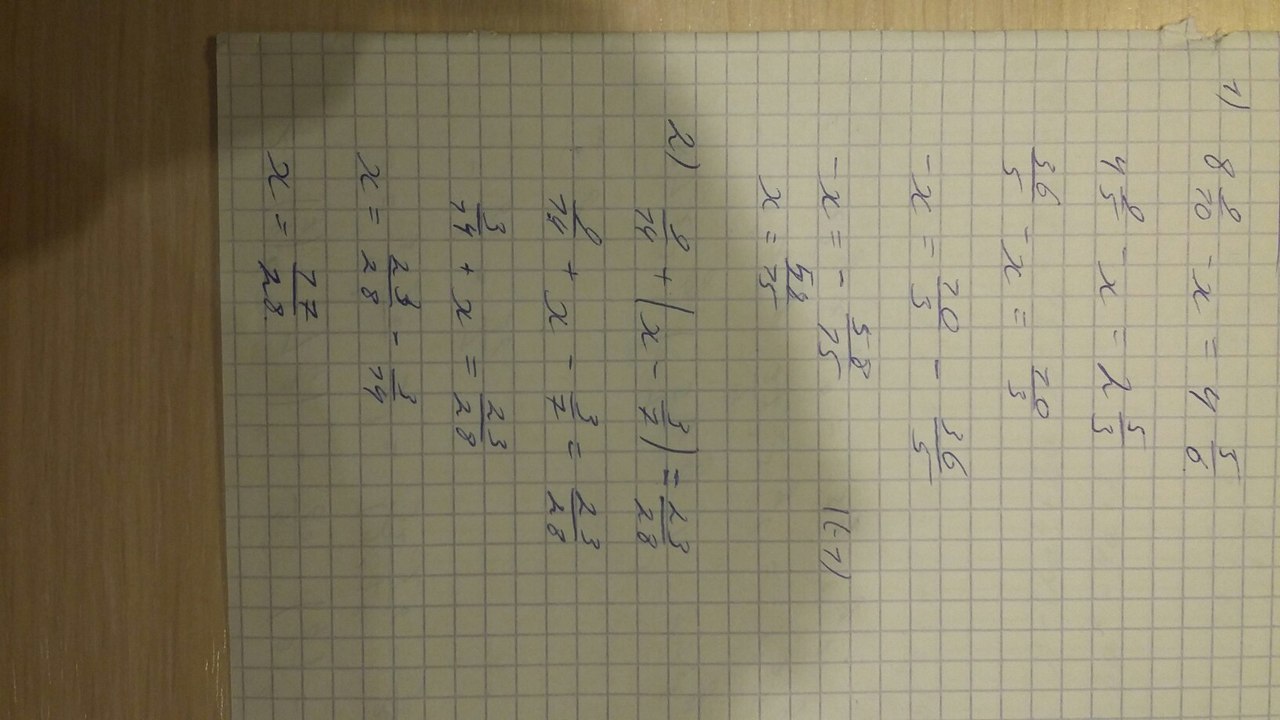 1) 8 9/10 - x = 4 5/6
4 9/5 - x = 2 5/3
36/5 - x = 10/3
-x = 10/3 - 36/5
-x = - 58/15 |(-1)
x = 58/15
2) 9/14 + (x - 3/7) = 23/28
9/14 + x - 3/7 = 23/28
3/14 + x = 23/28
x = 23/28 - 3/14
x = 17/28